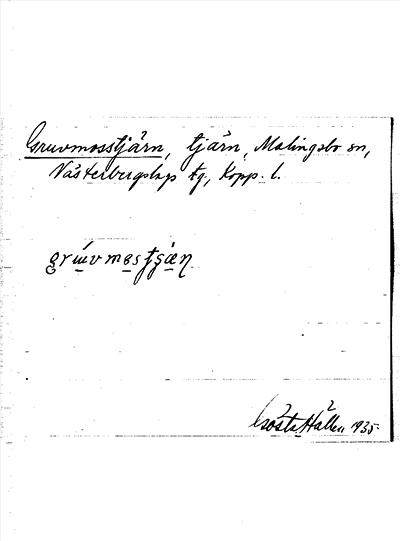 Gruvmosstjärn, tjärn, Malingsbo sn,
Västerbergslags tg, Kopp. l.
grúvmɵstʃæ̀ɳ
Gösta Hållen 1935